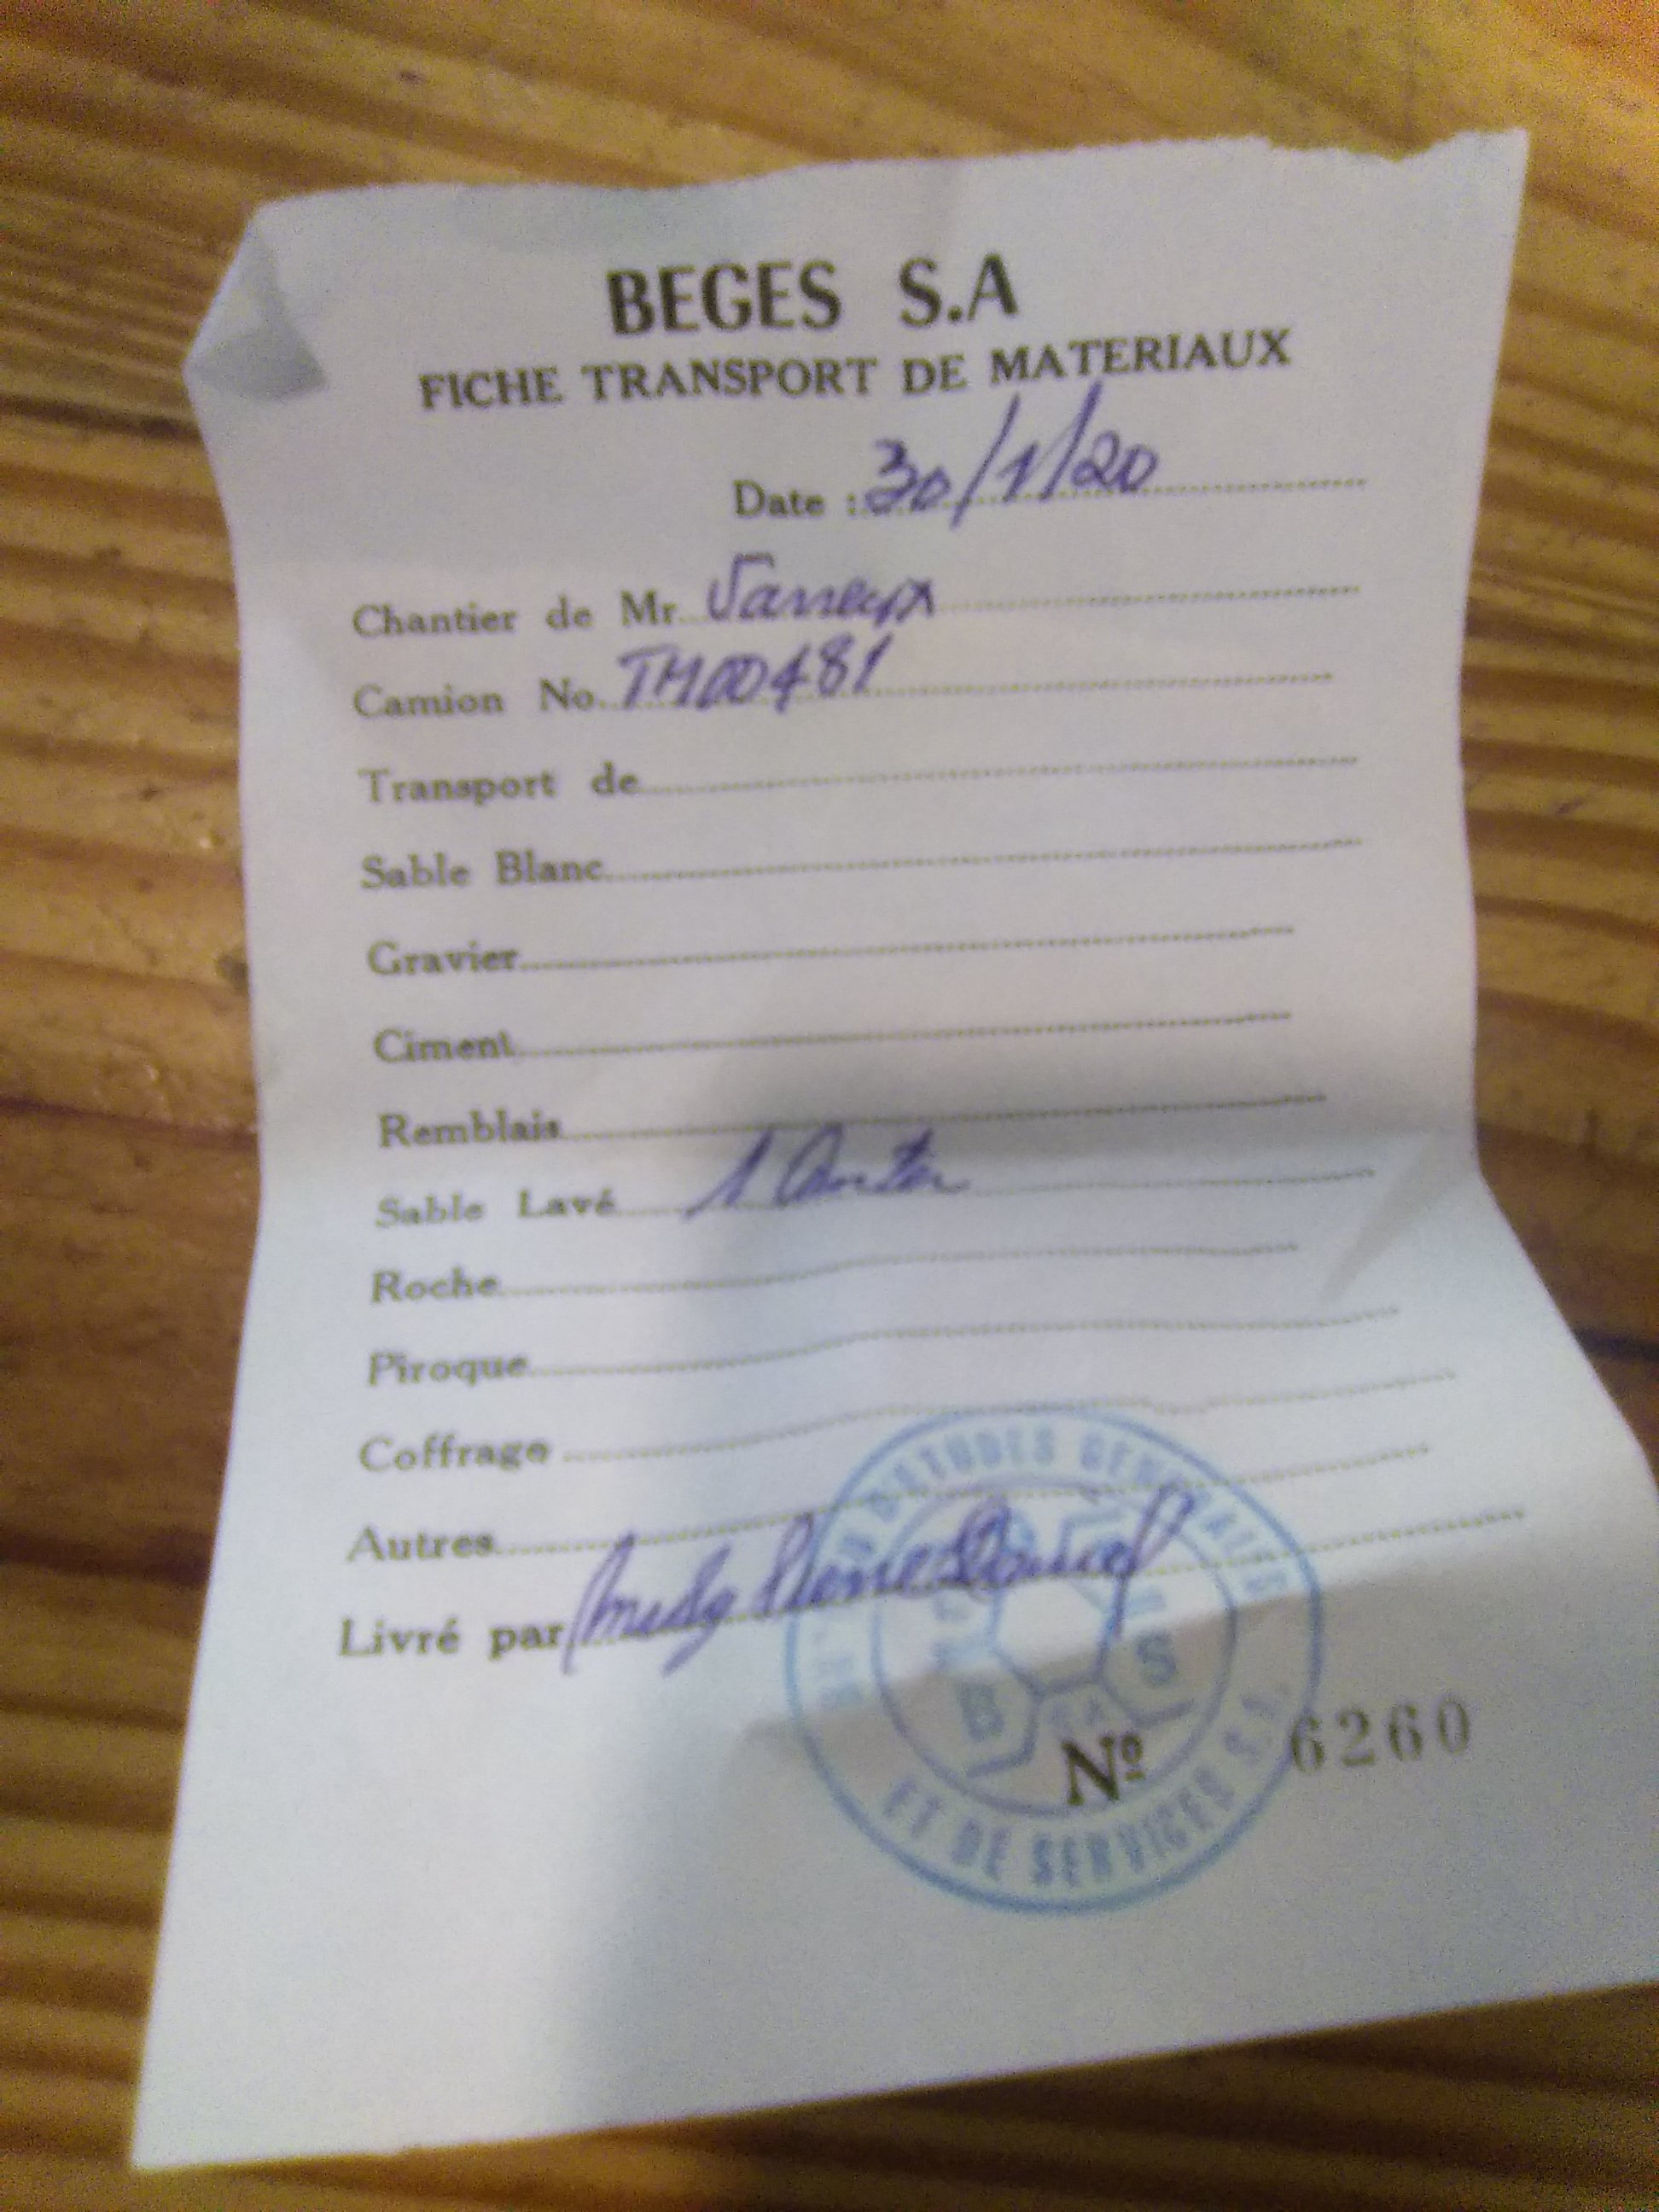 BEGES S.A
FICHE TRANSPORT DE MATERIAUX
Date : 30/1/20
Chantier de Mr. Varreux
Camion No. TM00481
Transport de
Sable Blanc
Gravier
Ciment
Remblais
Sable Lavé 1
Roche
Piroque
Coffrage
Autres
Livré par
D'ETUDES GENERALES
ET DE SERVICES S.A.
B S
S.A
Nº 6260